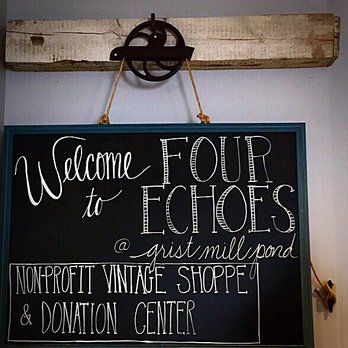 Welcome
to
FOUR
ECHOES
@ grist mill pond
NON-PROFIT VINTAGE SHOPPE
& DONATION CENTER